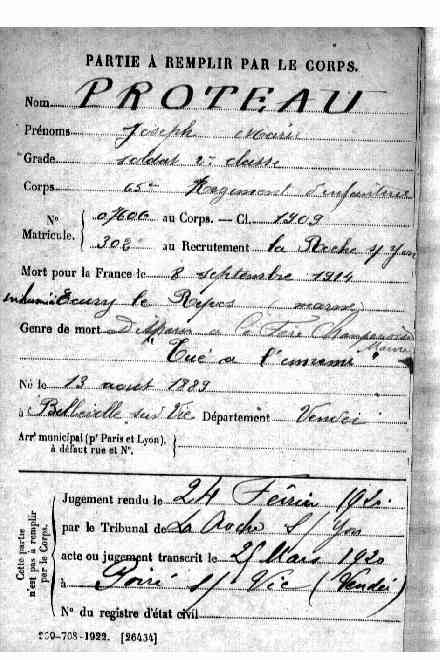 PARTIE À REMPLIR PAR LE CORPS.
Nom PROTEAU
Prénoms Joseph Marie
Grade soldat 2e classe
Corps 65me Régiment d'infanterie
N° Matricule. { 07606 au Corps. — Cl. 1909
305 au Recrutement la Roche s/ Yon
Mort pour la France le 8 septembre 1914
inhumé Ecury le Repos (marne)
Genre de mort Disparu a la Fère Champenoise
Marne
"Tué a l'ennemi"
Né le 13 août 1889
à Belleville sur Vie Département Vendée
Arr' municipal (p' Paris et Lyon), }
à défaut rue et N°.
Cette partie
n'est pas à remplir
par le Corps.
Jugement rendu le 24 Février 1920
par le Tribunal de La Roche S/ Yon
acte ou jugement transcrit le Mars 1920
à Poiré s/ Vie (Vendée)
N° du registre d'état civil
-708-1922. [26434]